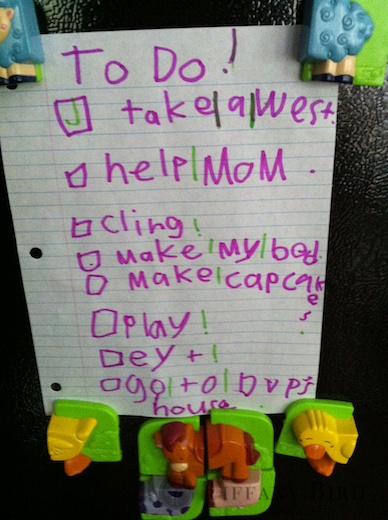 To Do!
take|a|West.
help|MoM.
cling!
make|My|bed.
Make|capcakes.
play!
ey+!
go|to|
house
TIFFANY BIRD